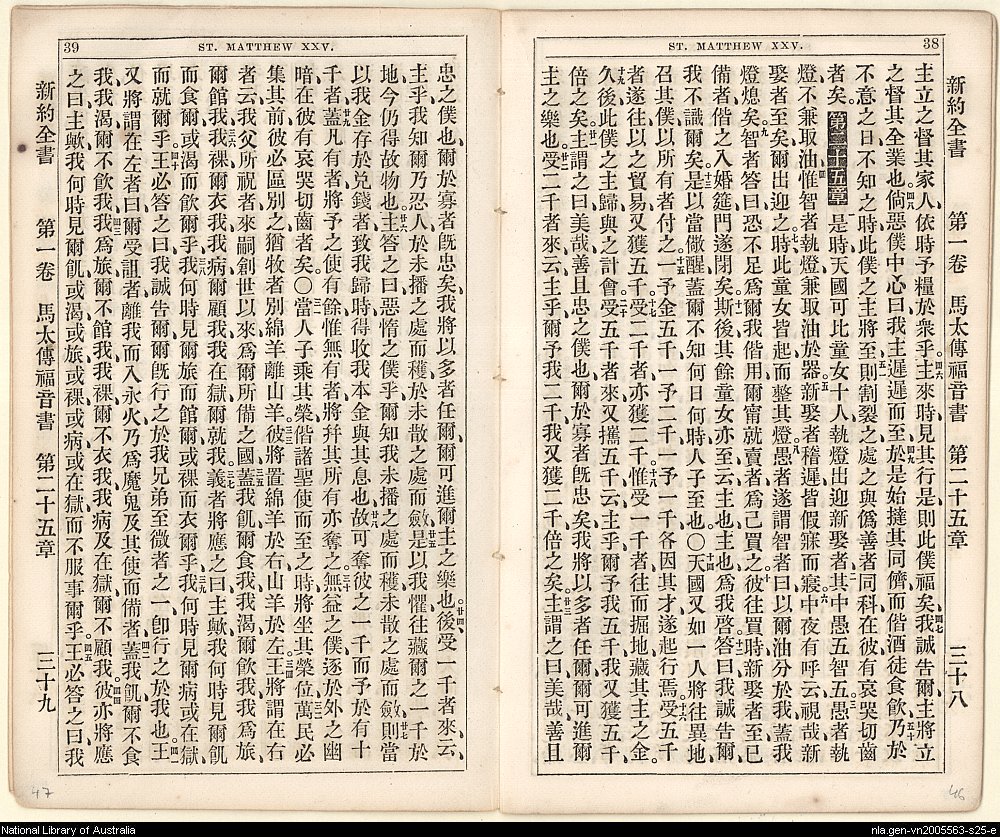 ST. MATTHEW XXV.
38
新約全書 第一卷 馬太傳福音書 第二十五章 三十八
主立之督其家人、依時予糧於衆乎、主來時、見其行是、則此僕福矣、我誠告爾、主將立
之督其全業也、倘惡僕中心曰、我主遲遲而至、於是始撻其同儕、而偕酒徒食飲、乃於
不意之日、不知之時、此僕之主將至、則割裂之、處之與僞善者同科、在彼有哀哭切齒
者矣。第二十五章 是時天國可比童女十人、執燈出迎新娶者、其中愚五智五、愚者執
燈、不兼取油、惟智者執燈、兼取油於器、新娶者稽遲、皆假寐而寢、中夜有呼云、視哉新
娶者至矣、爾出迎之、時此童女皆起、而整其燈、愚者遂謂智者曰、以爾油分於我、蓋我
燈熄矣、智者答曰、恐不足爲爾我偕用、爾甯就賣者爲己買之、彼往買時、新娶者至、已
備者偕之入婚筵、門遂閉矣、斯後其餘童女亦至云、主也主也、爲我啓、答曰、我誠告爾、
我不識爾矣、是以當儆醒、蓋爾不知何日何時人子至也。〇天國又如一人、將往異地、
召其僕、以所有者付之、一予金五千、一予二千、一予一千、各因其才、遂起行焉、受五千
者遂往、以之貿易、又獲五千、受二千者、亦獲二千、惟受一千者、往而掘地、藏其主之金、
久後此僕之主歸、與之計會、受五千者來、又攜五千云、主乎爾予我五千、我又獲五千、
倍之矣、主謂之曰、美哉、善且忠之僕也、爾於寡者旣忠矣、我將以多者任爾、爾可進爾
主之樂也、受二千者來云、主乎爾予我二千、我又獲二千、倍之矣、主謂之曰、美哉、善且
ST. MATTHEW XXV.
39
忠之僕也、爾於寡者旣忠矣、我將以多者任爾、爾可進爾主之樂也、後受一千者來云、
主乎我知爾乃忍人、於未播之處而穫、於未散之處而斂、是以我懼、往藏爾之一千於
地、今仍得故物也、主答之曰、惡惰之僕乎、爾知我未播之處而穫、未散之處而斂、則當
以我金存於兌錢者、致我歸時、得收我本金與其息也、故可奪彼之一千、而予於有十
千者、蓋凡有者、將予之、使有餘、惟無有者、將幷其所有亦奪之、無益之僕、逐於外之幽
暗、在彼有哀哭切齒者矣。〇當人子乘其榮、偕諸聖使而至之時、將坐其榮位、萬民必
集其前、彼必區別之、猶牧者別綿羊離山羊、彼將置綿羊於右、山羊於左、王將謂在右
者云、我父所祝者來、嗣創世以來、爲爾所備之國、蓋我飢、爾食我、我渴、爾飲我、我爲旅、
爾館我、我裸、爾衣我、我病、爾顧我、我在獄、爾就我、義者將應之曰、主歟、我何時見爾飢
而食爾、或渴而飲爾乎、我何時見爾旅而館爾、或裸而衣爾乎、我何時見爾病或在獄、
而就爾乎、王必答之曰、我誠告爾、爾旣行之於我兄弟至微者之一、卽行之於我也、王
又將謂在左者曰、爾受詛者離我、而入永火、乃爲魔鬼及其使而備者、蓋我飢、爾不食
我、我渴、爾不飲我、我爲旅、爾不館我、我裸、爾不衣我、我病及在獄、爾不顧我、彼亦將應
之曰、主歟、我何時見爾飢、或渴、或旅、或裸、或病、或在獄、而不服事爾乎、王必答之曰、我
新約全書 第一卷 馬太傳福音書 第二十五章 三十九
47
46
National Library of Australia
nla.gen-vn2005563-s25-e